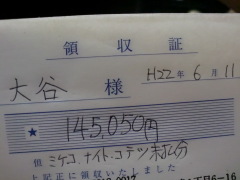 領収証
大谷 様 H22年6月11
★ 145,050円
但 ミケコ、ナイト、コテツ 未払分
上記正に領収いたしました
6-16